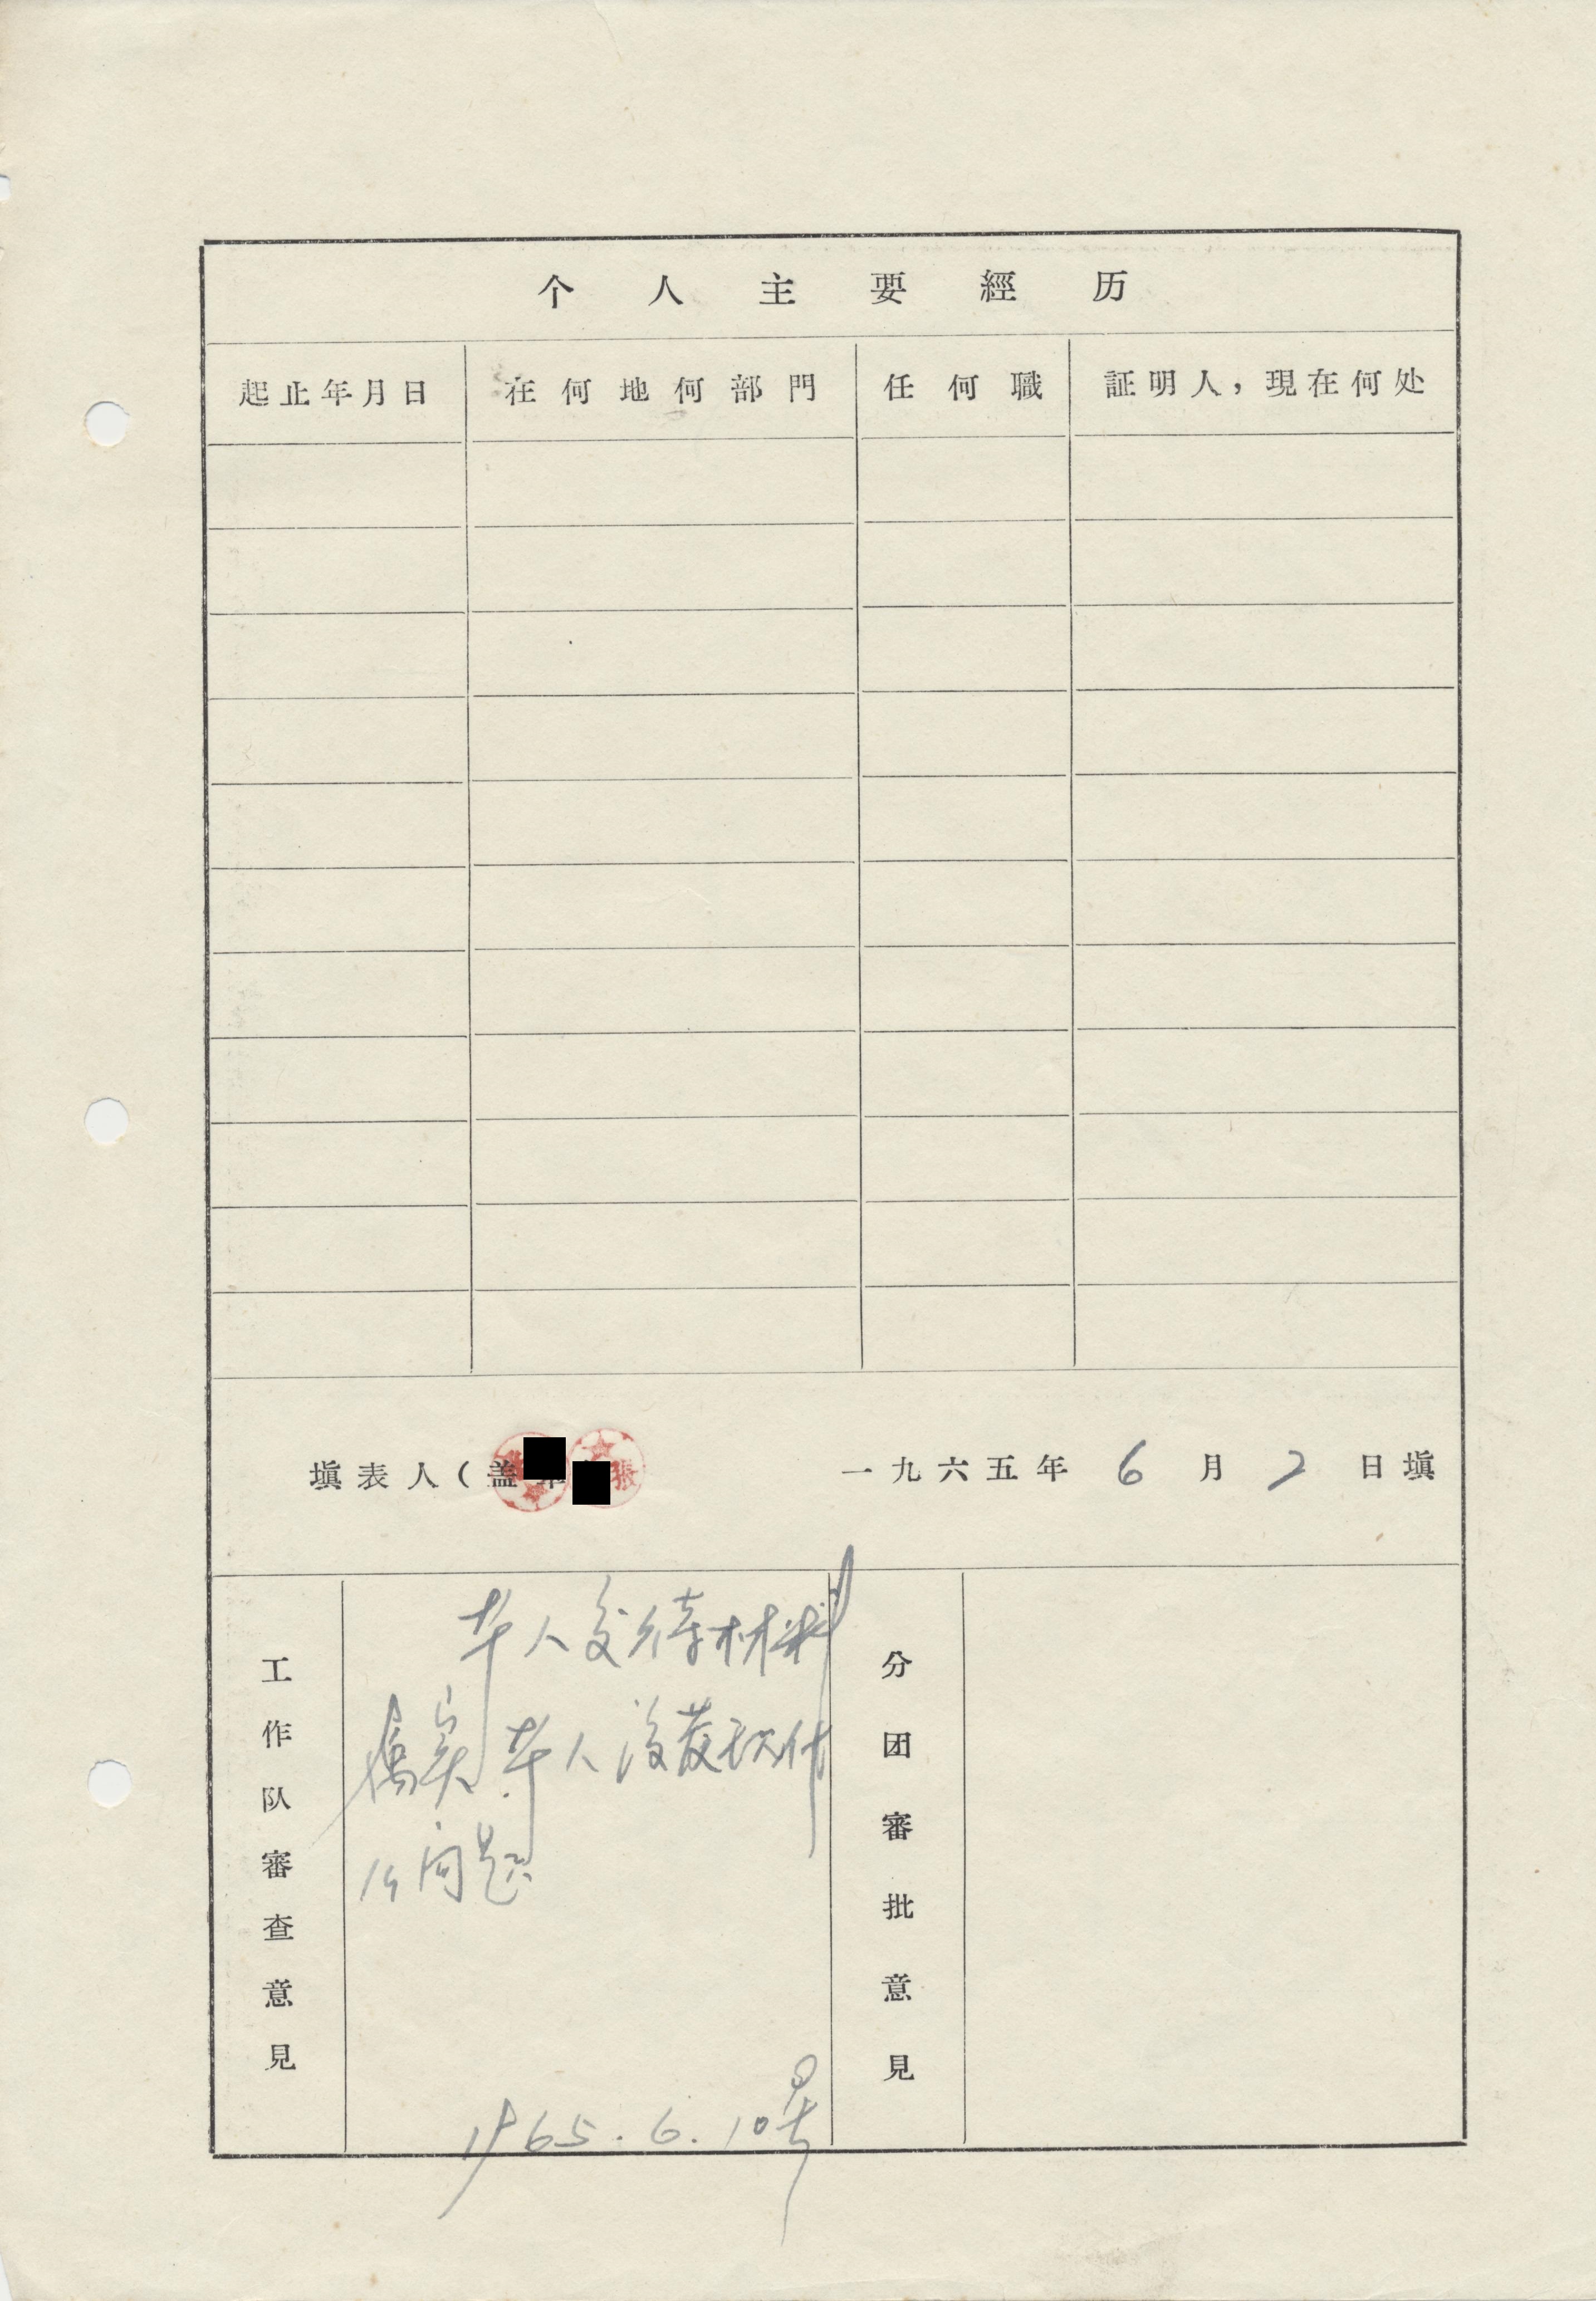 个人主要經历
起止年月日 在何地何部門 任何職 証明人，現在何处
填表人（盖章 張
一九六五年 6 月 2 日填
工作队審查意見
本人交待材料
属实本人没发现什
么问题
1965.6.10号
分团審批意見